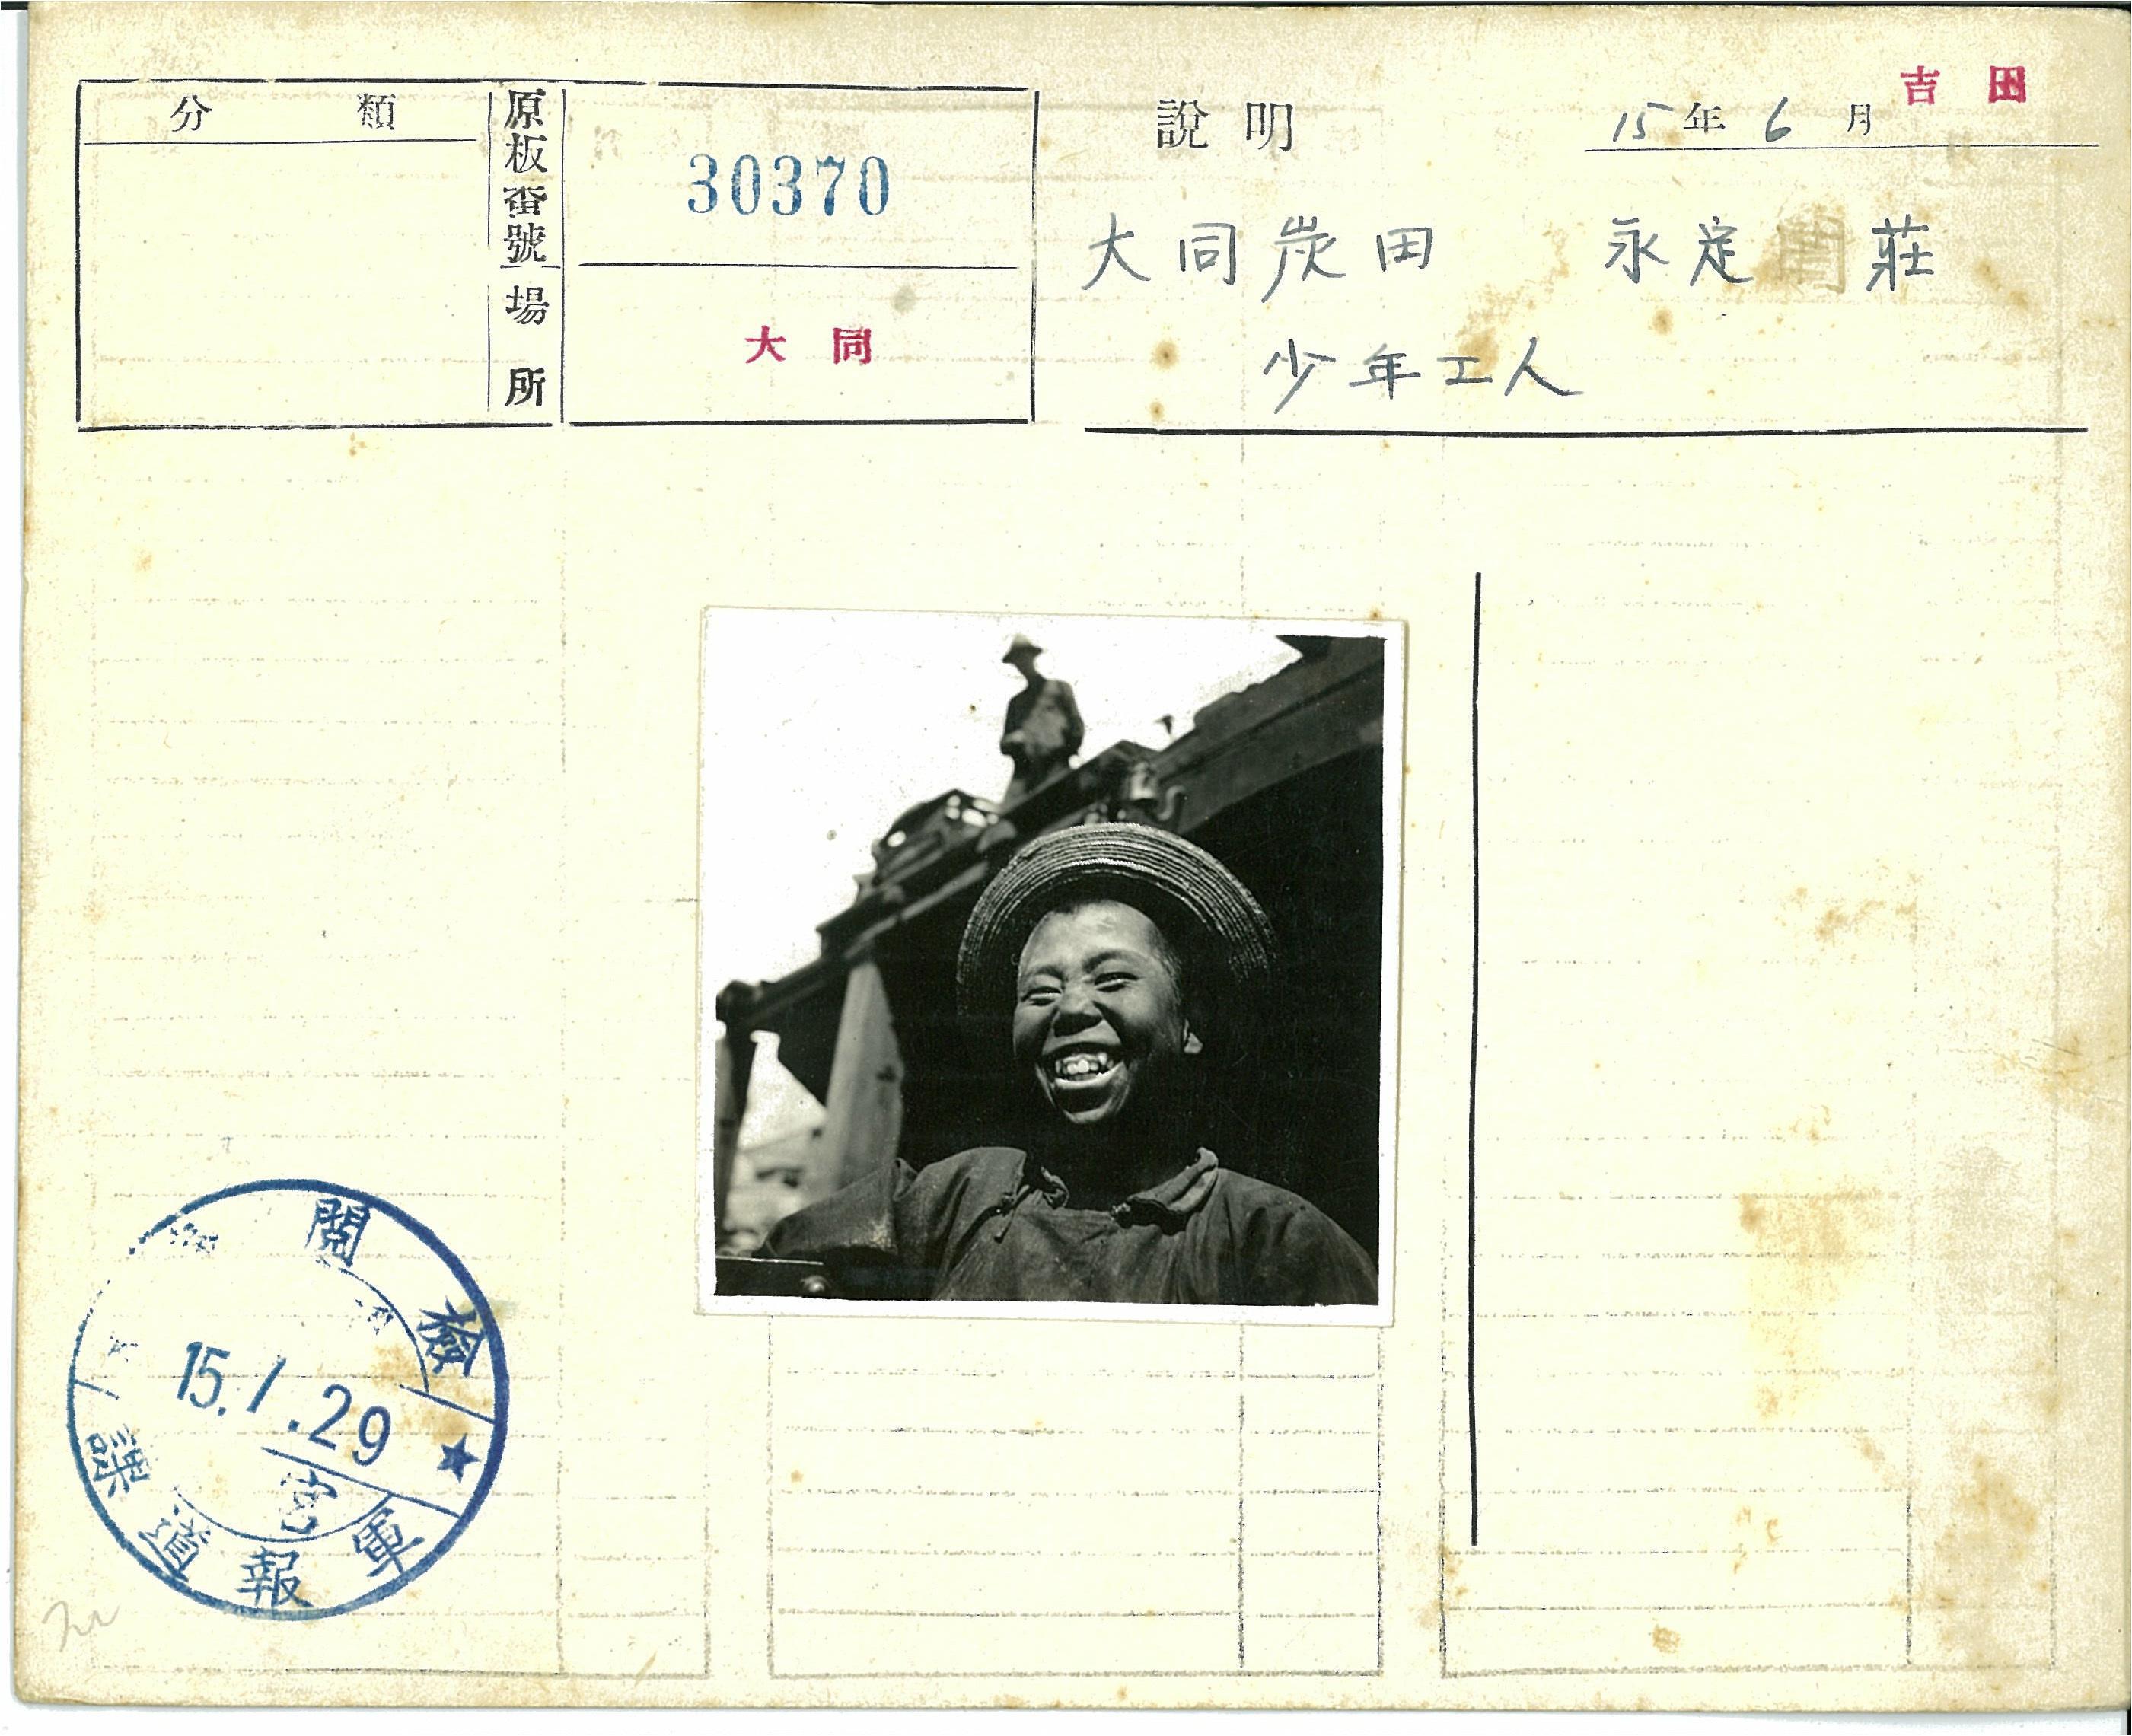 分類
原板番號
30370
場所
大同
說明
15年6月
吉田
大同炭田 永定莊
少年工人
檢閱
15.7.29
軍報道課